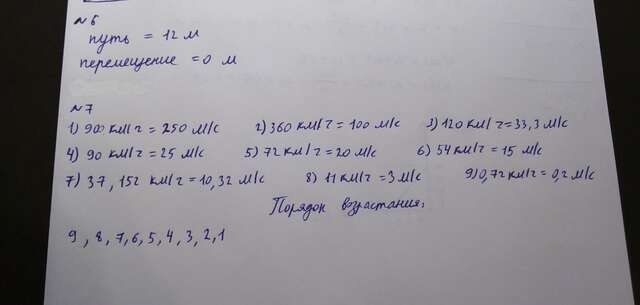 №6
путь = 12 м
перемещение = 0 м
№7
1) 900 км/ч = 250 м/с 2) 360 км/ч = 100 м/с 3) 120 км/ч = 33,3 м/с
4) 90 км/ч = 25 м/с 5) 72 км/ч = 20 м/с 6) 54 км/ч = 15 м/с
7) 37,152 км/ч = 10,32 м/с 8) 11 км/ч = 3 м/с 9) 0,72 км/ч = 0,2 м/с
Порядок возрастания:
9, 8, 7, 6, 5, 4, 3, 2, 1